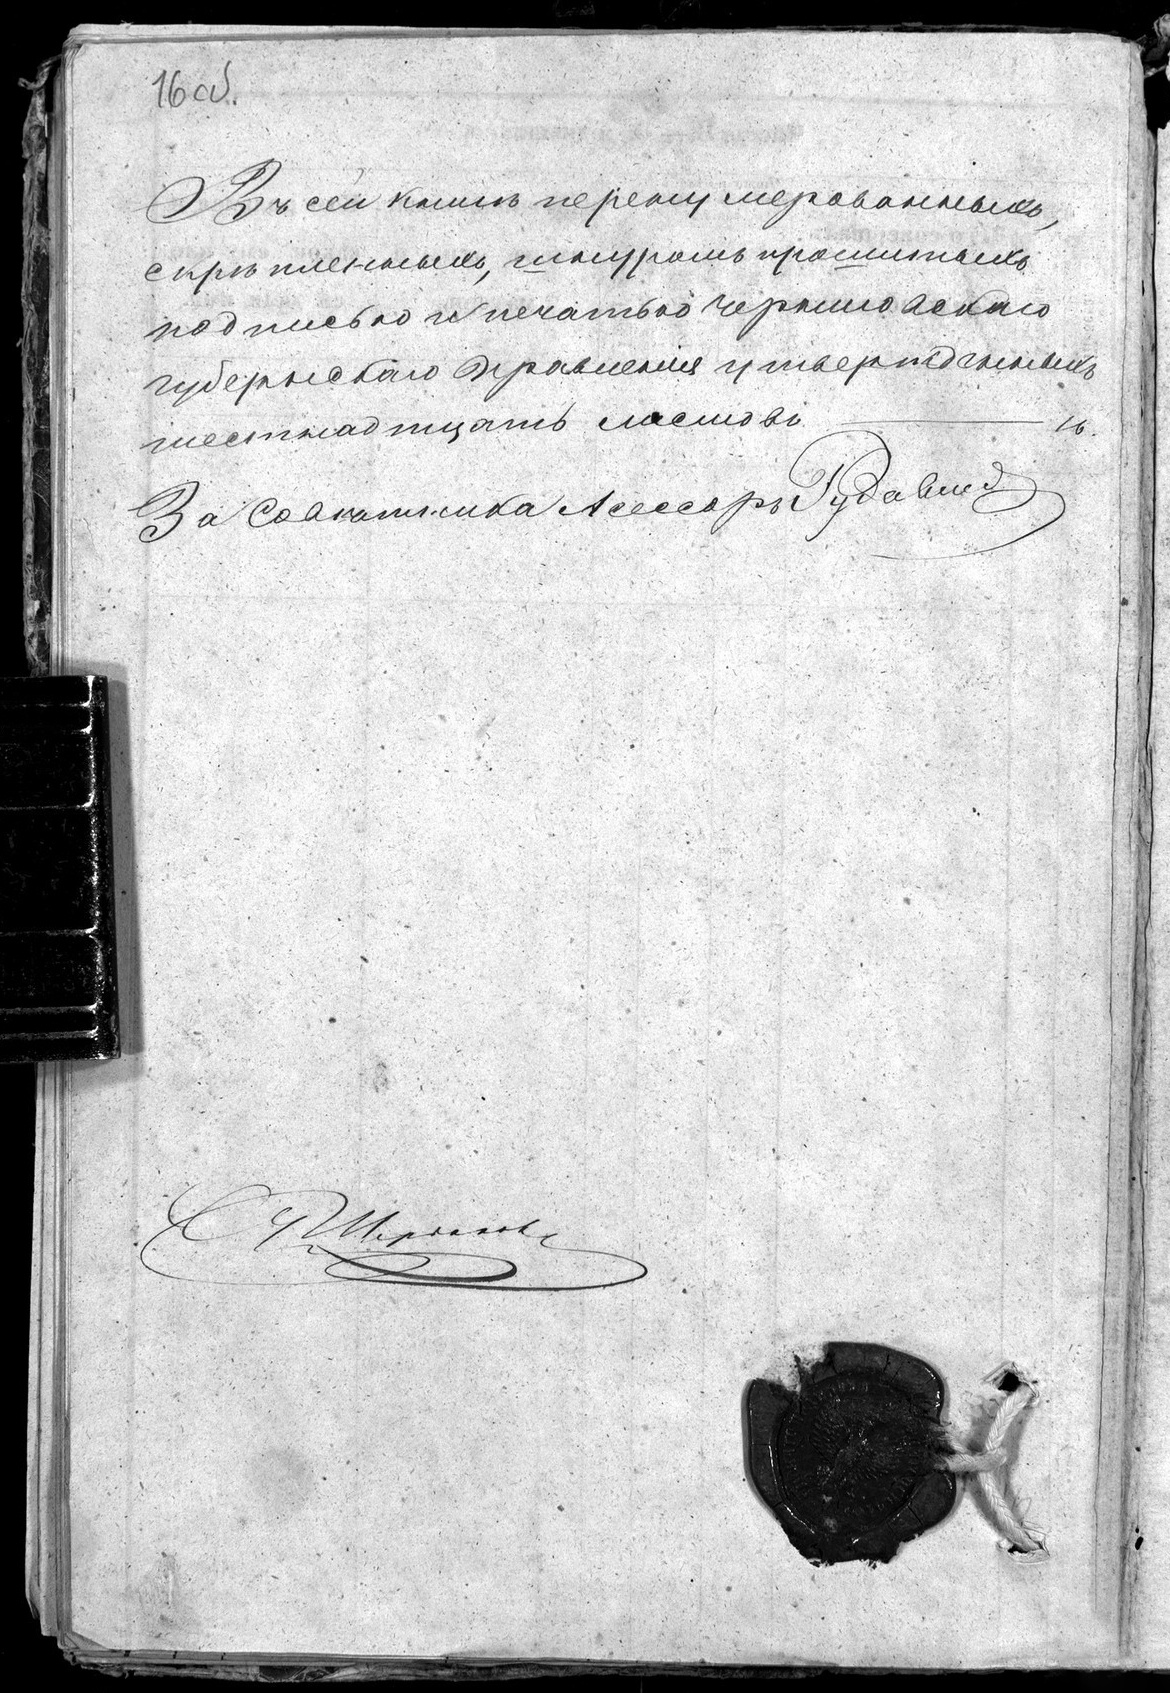 16 об.
Въ сей книгѣ перенумерованныхъ,
скрѣпленныхъ, шнуромъ прошитыхъ
подписью и печатью Черниговскаго
губернскаго Правления утвержденныхъ
шестнадцать листовъ — 16.
За Советника Асессоръ